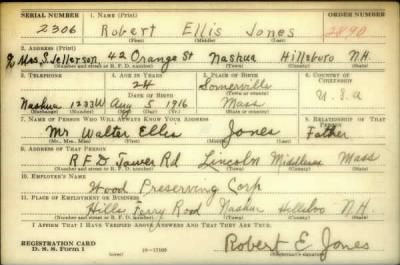 SERIAL NUMBER 1. NAME (Print) ORDER NUMBER
2306 Robert Ellis Jones 2890
(First) (Middle) (Last)
2. ADDRESS (Print)
% Mrs. S. Jefferson 42 Orange St Nashua Hillsboro N.H.
(Number and street or R. F. D. number) (Town) (County) (State)
3. TELEPHONE 4. AGE IN YEARS 5. PLACE OF BIRTH 6. COUNTRY OF CITIZENSHIP
24 Somerville
DATE OF BIRTH (Town or county)
Nashua 1233W Aug 5 1916 Mass U.S.a
(Exchange) (Number) (Mo.) (Day) (Yr.) (State or country)
7. NAME OF PERSON WHO WILL ALWAYS KNOW YOUR ADDRESS 8. RELATIONSHIP OF THAT PERSON
Mr. Walter Ellis Jones Father
(Mr., Mrs., Miss) (First) (Middle) (Last)
9. ADDRESS OF THAT PERSON
R F D Tower Rd Lincoln Middlesex Mass
(Number and street or R. F. D. number) (Town) (County) (State)
10. EMPLOYER'S NAME
Wood Preserving Corp
11. PLACE OF EMPLOYMENT OR BUSINESS
Hills Ferry Road Nashua Hillsboro N.H.
(Number and street or R. F. D. number) (Town) (County) (State)
I AFFIRM THAT I HAVE VERIFIED ABOVE ANSWERS AND THAT THEY ARE TRUE.
REGISTRATION CARD
D. S. S. Form 1 (over) Robert E. Jones
(Registrant's signature)